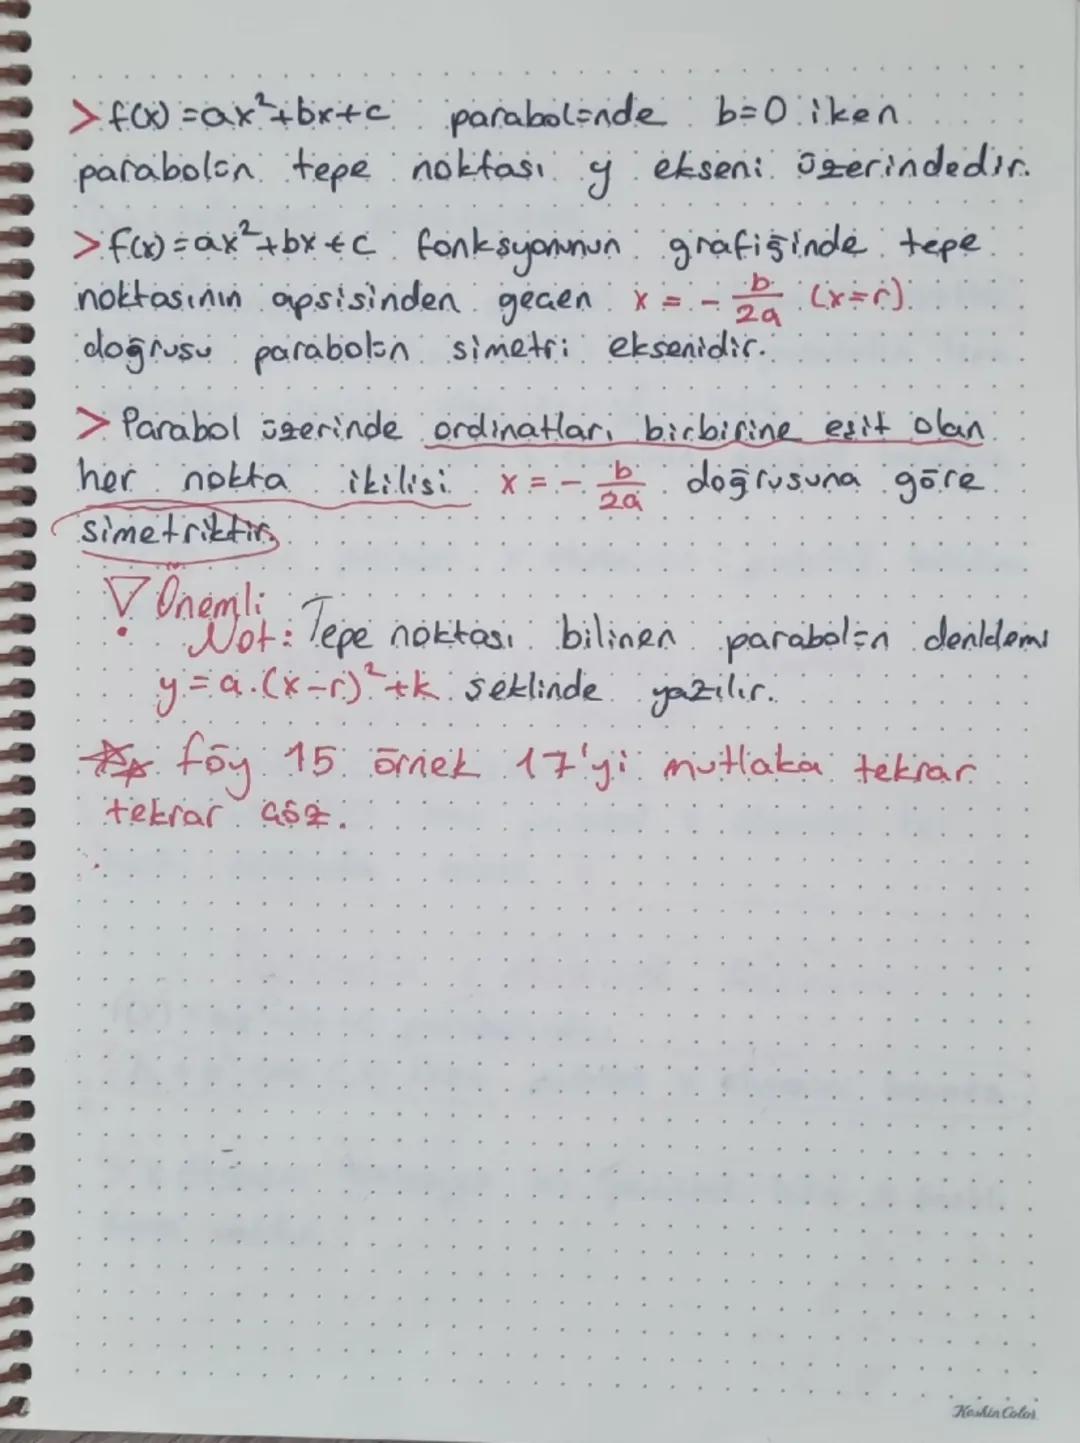 > f(x) = ax²+bx+c parabolünde b=0 iken
parabolün tepe noktası y ekseni üzerindedir.
> f(x) = ax²+bx+c fonksyonunun grafiğinde tepe
noktasının apsisinden geçen x = - b/2a (x=r)
doğrusu parabolün simetri eksenidir.
> Parabol üzerinde ordinatları birbirine eşit olan
her nokta ikilisi x = - b/2a doğrusuna göre
simetriktir.
Önemli
Not: Tepe noktası bilinen parabolün denklemi
y = a.(x-r)²+k şeklinde yazılır.
föy 15 örnek 17'yi mutlaka tekrar
tekrar çöz.
Keskin Color